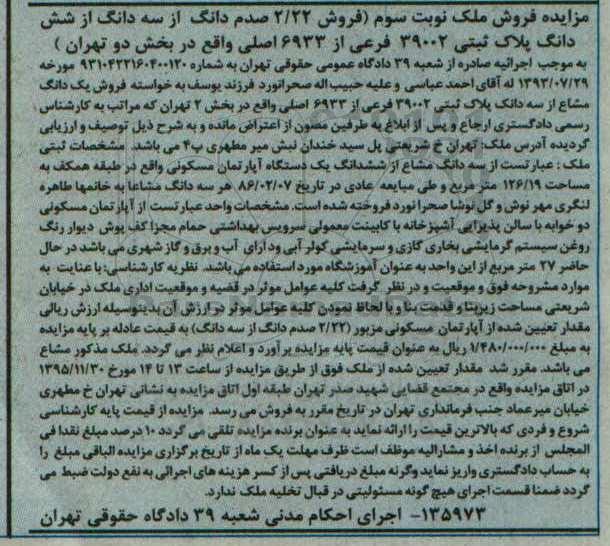 مزایده فروش ملک نوبت سوم (فروش ۲/۲۲ صدم دانگ از سه دانگ از شش
دانگ پلاک ثبتی ۳۹۰۰۲ فرعی از ۶۹۳۳ اصلی واقع در بخش دو تهران )
به موجب اجرائیه صادره از شعبه ۳۹ دادگاه عمومی حقوقی تهران به شماره ۹۳۱۰۴۲۲۱۶۰۴۰۰۱۲۰ مورخه
۱۳۹۳/۰۷/۲۹ له آقای احمد عباسی و علیه حبیب اله صحرانورد فرزند یوسف به خواسته فروش یک دانگ
مشاع از سه دانگ پلاک ثبتی ۳۹۰۰۲ فرعی از ۶۹۳۳ اصلی واقع در بخش ۲ تهران که مراتب به کارشناس
رسمی دادگستری ارجاع و پس از ابلاغ به طرفین مصون از اعتراض مانده و به شرح ذیل توصیف و ارزیابی
گردیده آدرس ملک: تهران خ شریعتی پل سید خندان نبش میر مطهری پ۴ می باشد. مشخصات ثبتی
ملک : عبارتست از سه دانگ مشاع از ششدانگ یک دستگاه آپارتمان مسکونی واقع در طبقه همکف به
مساحت ۱۲۶/۱۹ متر مربع و طی مبایعه عادی در تاریخ ۸۶/۰۲/۰۷ هر سه دانگ مشاعا به خانمها طاهره
لنگری مهر نوش و گل نوشا صحرانورد فروخته شده است. مشخصات واحد عبارتست از آپارتمان مسکونی
دو خوابه با سالن پذیرایی آشپزخانه با کابینت معمولی سرویس بهداشتی حمام مجزا کف پوش دیوار رنگ
روغن سیستم گرمایشی بخاری گازی و سرمایشی کولر آبی ودارای آب و برق و گاز شهری می باشد در حال
حاضر ۲۷ متر مربع از این واحد به عنوان آموزشگاه مورد استفاده می باشد. نظریه کارشناسی: با عنایت به
موارد مشروحه فوق و موقعیت و در نظر گرفت کلیه عوامل موثر در قضیه و موقعیت اداری ملک در خیابان
شریعتی مساحت زیربنا و قدمت بنا و با لحاظ نمودن کلیه عوامل موثر در ارزش آن بدینوسیله ارزش ریالی
مقدار تعیین شده از آپارتمان مسکونی مزبور (۲/۲۲ صدم دانگ از سه دانگ) به قیمت عادله بر پایه مزایده
به مبلغ ۱/۴۸۰/۰۰۰/۰۰۰ ریال به عنوان قیمت پایه مزایده برآورد و اعلام نظر می گردد. ملک مذکور مشاع
می باشد. مقرر شد مقدار تعیین شده از ملک فوق از طریق مزایده از ساعت ۱۳ تا ۱۴ مورخ ۱۳۹۵/۱۱/۳۰
در اتاق مزایده واقع در مجتمع قضایی شهید صدر تهران طبقه اول اتاق مزایده به نشانی تهران خ مطهری
خیابان میرعماد جنب فرمانداری تهران در تاریخ مقرر به فروش می رسد. مزایده از قیمت پایه کارشناسی
شروع و فردی که بالاترین قیمت را ارائه نماید به عنوان برنده مزایده تلقی می گردد ۱۰ درصد مبلغ نقدا فی
المجلس از برنده اخذ و مشارالیه موظف است ظرف مهلت یک ماه از تاریخ برگزاری مزایده الباقی مبلغ را
به حساب دادگستری واریز نماید وگرنه مبلغ دریافتی پس از کسر هزینه های اجرائی به نفع دولت ضبط می
گردد ضمنا قسمت اجرای هیچ گونه مسئولیتی در قبال تخلیه ملک ندارد.
۱۳۵۹۷۳- اجرای احکام مدنی شعبه ۳۹ دادگاه حقوقی تهران